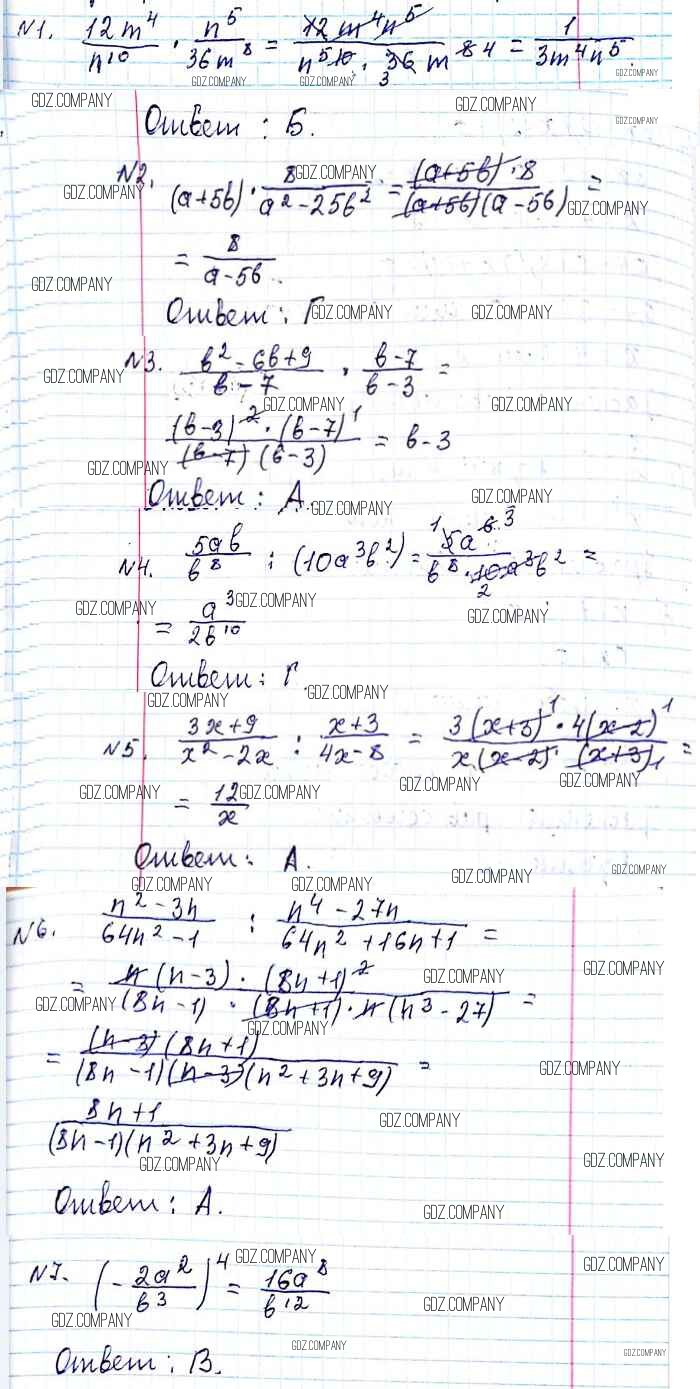 N1. 12m⁴/n¹⁰ · n⁵/36m⁸ = 12m⁴n⁵/n⁵10 · 36 3 m 8 4 = 1/3m⁴n⁵.
GDZ.COMPANY GDZ.COMPANY GDZ.COMPANY GDZ.COMPANY
GDZ.COMPANY GDZ.COMPANY GDZ.COMPANY
Ответ : Б.
N2. (a+5b) · 8/a²-25b² = (a+5b)·8/(a+5b)(a-5b) =
GDZ.COMPANY GDZ.COMPANY GDZ.COMPANY
= 8/a-5b.
GDZ.COMPANY
Ответ : Г
GDZ.COMPANY GDZ.COMPANY
N3. b²-6b+9/b-7 · b-7/b-3 =
GDZ.COMPANY GDZ.COMPANY GDZ.COMPANY
(b-3)²·(b-7)¹/(b-7)(b-3) = b-3
GDZ.COMPANY
Ответ : А.
GDZ.COMPANY GDZ.COMPANY
N4. 5ab/b⁸ : (10a³b²) = 1 5a b 3/b⁸·10 2 a³b² =
GDZ.COMPANY GDZ.COMPANY GDZ.COMPANY
= a³/2b¹⁰
Ответ : Г.
GDZ.COMPANY
GDZ.COMPANY
N5. 3x+9/x²-2x : x+3/4x-8 = 3(x+3)¹·4(x-2)¹/x(x-2)¹(x+3)₁ =
GDZ.COMPANY GDZ.COMPANY GDZ.COMPANY GDZ.COMPANY
= 12/x
Ответ : А.
GDZ.COMPANY GDZ.COMPANY GDZ.COMPANY GDZ.COMPANY
N6. n²-3n/64n²-1 : n⁴-27n/64n²+16n+1 =
GDZ.COMPANY GDZ.COMPANY
= n(n-3)·(8n+1)²/(8n-1)·(8n+1)·n(n³-27) =
GDZ.COMPANY GDZ.COMPANY
= (n-3)(8n+1)/(8n-1)(n-3)(n²+3n+9) =
GDZ.COMPANY
8n+1/(8n-1)(n²+3n+9)
GDZ.COMPANY
GDZ.COMPANY GDZ.COMPANY
Ответ : А.
GDZ.COMPANY
N7. (-2a²/b³)⁴ = 16a⁸/b¹²
GDZ.COMPANY GDZ.COMPANY
GDZ.COMPANY GDZ.COMPANY
Ответ : В.
GDZ.COMPANY GDZ.COMPANY